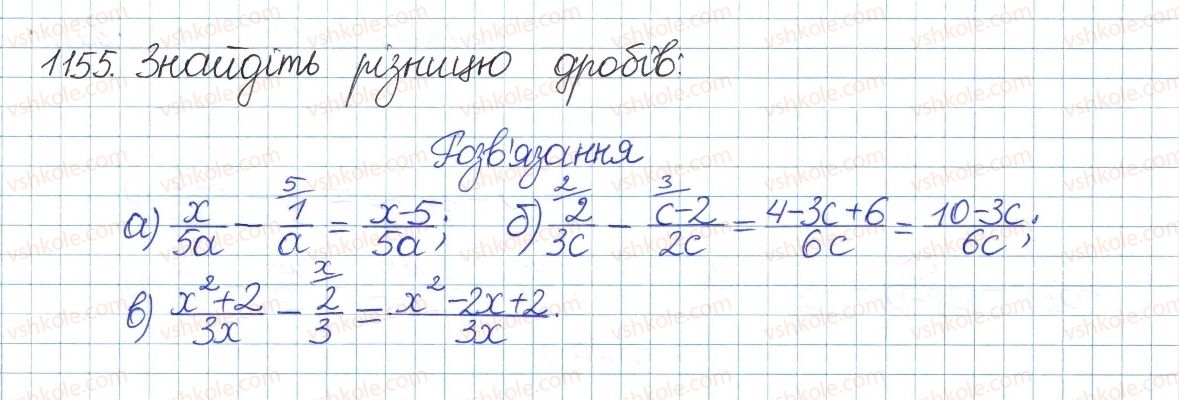 1155. Знайдіть різницю дробів:
Розв'язання
а) x/5a − 1/a (5) = (x−5)/5a; б) 2/3c (2) − (c−2)/2c (3) = (4−3c+6)/6c = (10−3c)/6c;
в) (x²+2)/3x − 2/3 (x) = (x²−2x+2)/3x.
vshkole.com